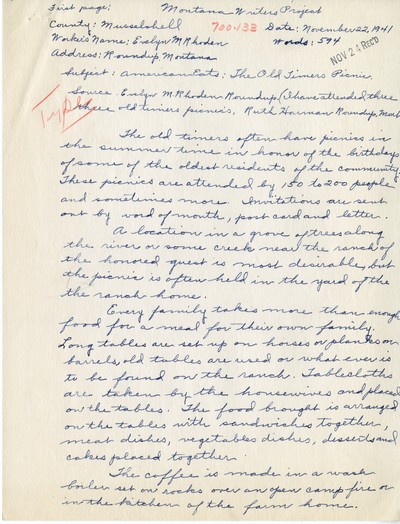 First page: Montana Writers Project
County: Musselshell 700.133 Date; November 22, 1941
Worker's Name; Evelyn M Rhoden Words: 594
Address; Roundup, Montana NOV 24 REC'D
Subject: American Eats: The Old Timers Picnic.
Source Evelyn M Rhoden Roundup (I have attended three
three old timers picnics, Ruth Harman Roundup, Mont
Typed
The old timers often have picnics in
the summer time in honor of the birthdays
of some of the oldest residents of the community.
These picnics are attended by 150 to 200 people
and sometimes more. Invitations are sent
out by word of mouth, post card and letter.
A location in a grove of trees along
the river or some creek near the ranch of
the honored guest is most desirable, but
the picnic is often held in the yard of the
the ranch home.
Every family takes more than enough
food for a meal for their own family.
Long tables are set up on horses or planks on
barrels, old tables are used or what ever is
to be found on the ranch. Tablecloths
are taken by the housewives and placed
on the tables. The food brought is arranged
on the tables with sandwiches together,
meat dishes, vegetables dishes, desserts and
cakes placed together.
The coffee is made in a wash
boiler set on rocks over an open camp fire or
in the kitchen of the farm home.